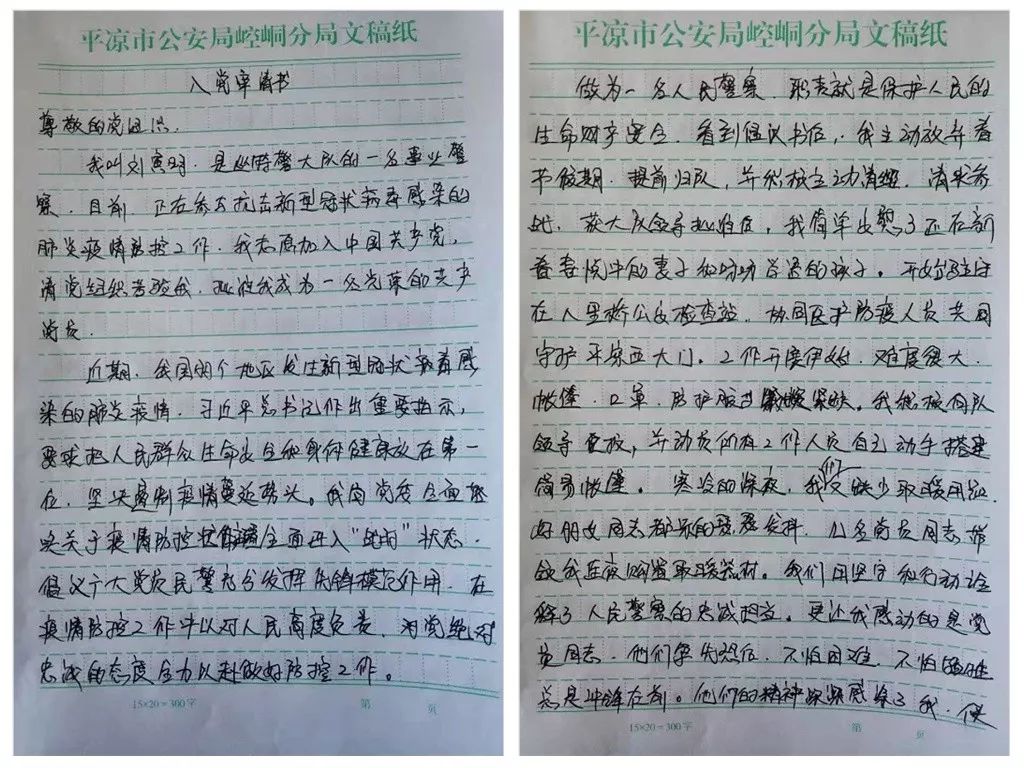 平凉市公安局崆峒分局文稿纸
入党申请书
尊敬的党组织:
我叫刘寅明,是巡特警大队的一名事业警
察,目前,正在参与抗击新型冠状病毒感染的
肺炎疫情防控工作,我志愿加入中国共产党,
请党组织考验我,批准我成为一名光荣的共产
党员.
近期,全国两个地区发生新型冠状病毒感
染的肺炎疫情,习近平总书记作出重要指示,
要求把人民群众生命安全和身体健康放在第一
位,坚决遏制疫情蔓延势头。我局党委全面
关于疫情防控全面进入“战时”状态,
倡议广大党员民警充分发挥先锋模范作用,在
疫情防控工作中以对人民高度负责,对党绝对
忠诚的态度全力以赴做好防控工作。
15×20=300字 第 页
平凉市公安局崆峒分局文稿纸
做为一名人民警察,职责就是保护人民的
生命财产安全,看到倡议书后,我主动放弃春
节假期,提前归队,并积极主动请缨,请求参
战,获大队领导批准后,我简单安慰了还在
月中的妻子和的孩子。开始驻守
在八里桥公安检查站,协同医护防疫人员共同
守护平凉西大门。工作开展伊始,难度很大,
帐篷,口罩,防护服紧缺。我积极向队
领导,并动员所有工作人员自己动手搭建
简易帐篷。寒冷的深夜,我们缺少取暖用品,
好朋友同志都,几名党员同志带
领我连夜购置取暖器材。我们用坚守和行动诠
释了人民警察的忠诚担当。更让我感动的是党
员同志,他们率先垂范,不怕困难,不怕
总是冲锋在前。他们的精神深深感染了我,使
15×20=300字 第 页